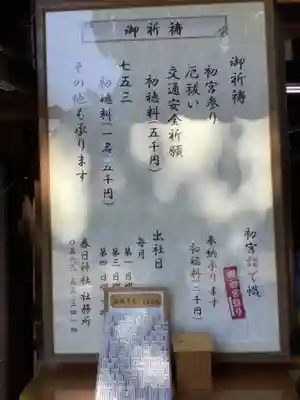 御祈祷
御祈祷
初宮参り
厄祓い
交通安全祈願
初穂料(五千円)
七五三
初穂料(一名五千円)
その他も承ります
初宮詣で幟
奉納承ります
初穂料(二千円)
出社日
毎月
第一
第三
第四
春日神社社務所